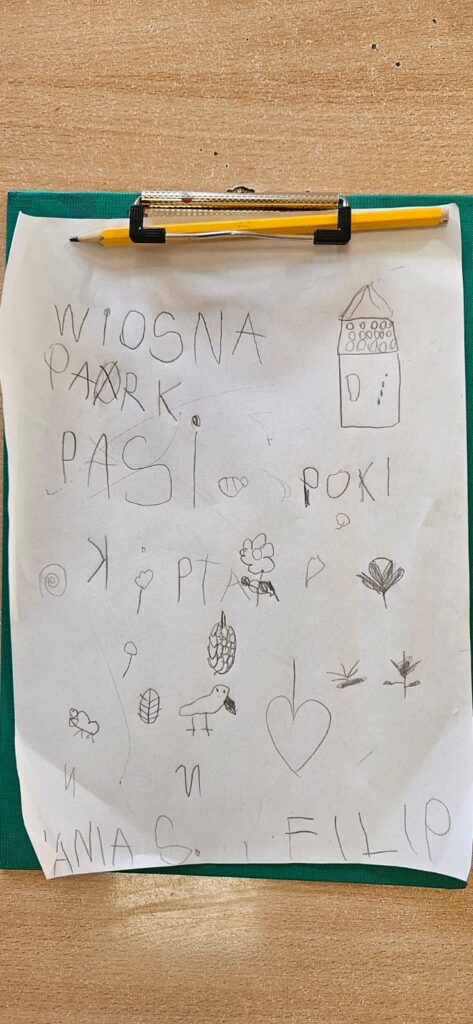 WIOSNA
PARK
PASI
POKI
K i PTAK P
N N
ANIA S. FILIP